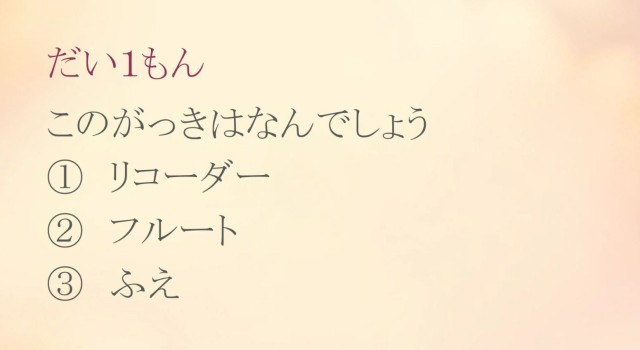 だい1もん
このがっきはなんでしょう
① リコーダー
② フルート
③ ふえ